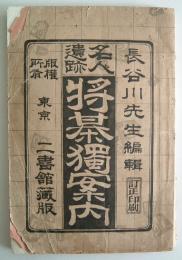 長谷川先生編輯
訂正印刷
名人遺跡
将棊獨案内
版權所有
東京
二書館藏版